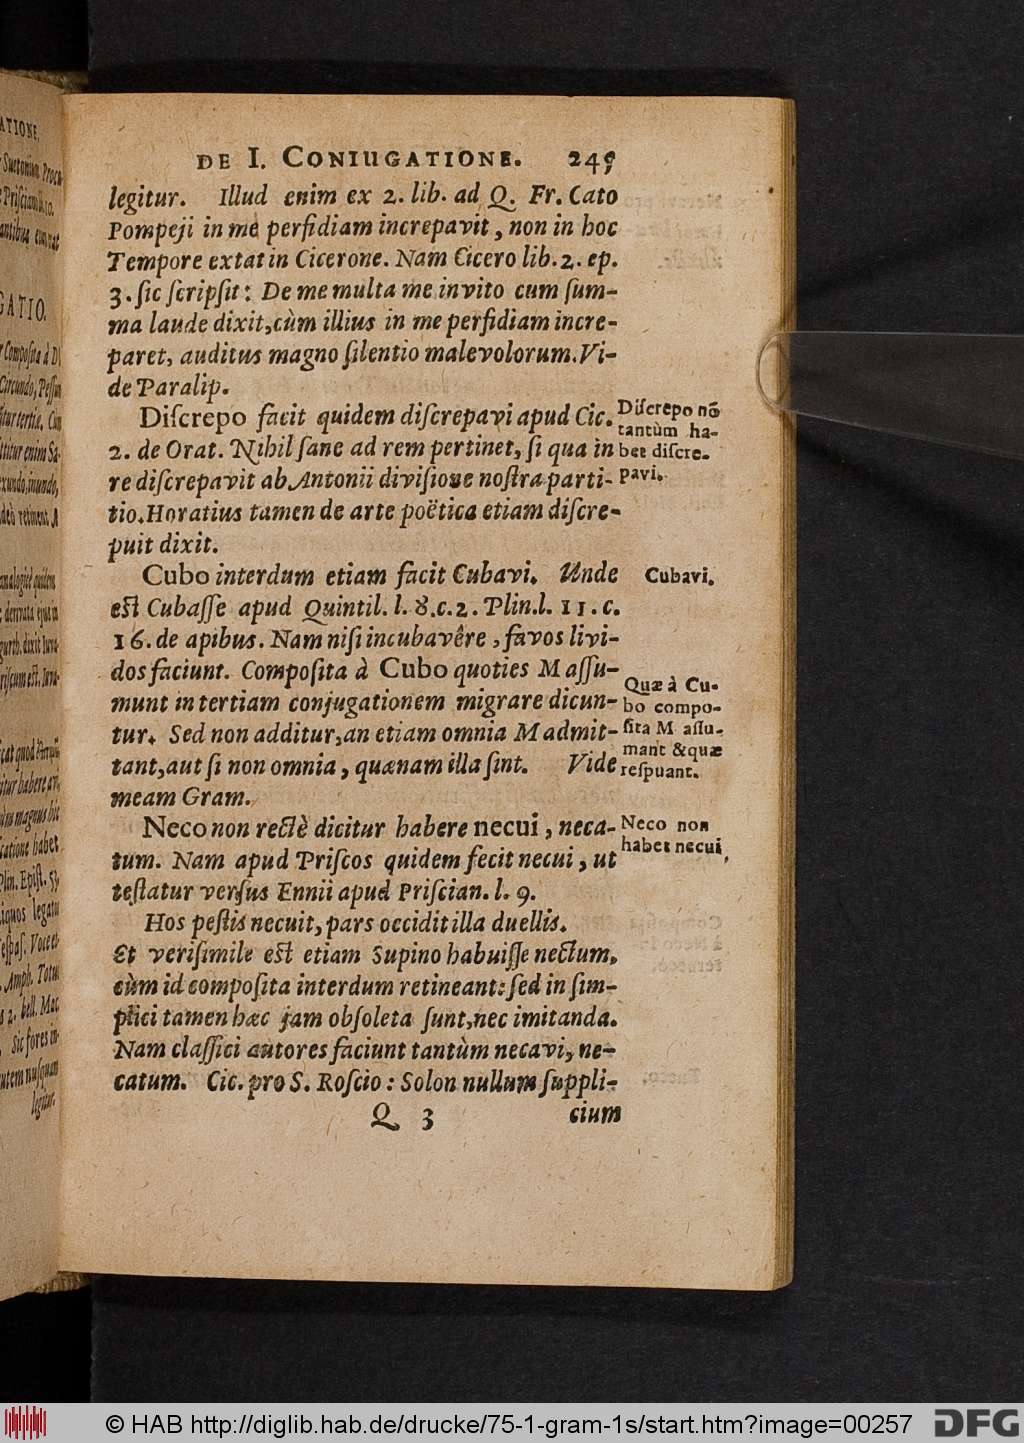 DE I. CONIUGATIONE. 245
legitur. Illud enim ex 2. lib. ad Q. Fr. Cato
Pompeji in me perfidiam increpavit, non in hoc
Tempore extat in Cicerone. Nam Cicero lib. 2. ep.
3. sic scripsit: De me multa me invito cum sum-
ma laude dixit, cùm illius in me perfidiam incre-
paret, auditus magno silentio malevolorum. Vi-
de Paralip.
Discrepo facit quidem discrepavi apud Cic.
2. de Orat. Nihil sane ad rem pertinet, si qua in
re discrepavit ab Antonii divisione nostra parti-
tio. Horatius tamen de arte poëtica etiam discre-
puit dixit.
Discrepo nō
tantùm ha-
bet discre-
pavi.
Cubo interdum etiam facit Cubavi. Unde
est Cubasse apud Quintil. l. 8. c. 2. Plin. l. 11. c.
16. de apibus. Nam nisi incubavêre, favos livi-
dos faciunt. Composita à Cubo quoties M assu-
munt in tertiam conjugationem migrare dicun-
tur. Sed non additur, an etiam omnia M admit-
tant, aut si non omnia, quænam illa sint. Vide
meam Gram.
Cubavi.
Quæ à Cu-
bo compo-
sita M assu-
mant & quæ
respuant.
Neco non rectè dicitur habere necui, neca-
tum. Nam apud Priscos quidem fecit necui, ut
testatur versus Ennii apud Priscian. l. 9.
Neco non
habet necui,
Hos pestis necuit, pars occidit illa duellis.
Et verisimile est etiam Supino habuisse nectum,
cùm id composita interdum retineant: sed in sim-
plici tamen hæc jam obsoleta sunt, nec imitanda.
Nam classici autores faciunt tantùm necavi, ne-
catum. Cic. pro S. Roscio: Solon nullum suppli-
Q 3 cium
© HAB http://diglib.hab.de/drucke/75-1-gram-1s/start.htm?image=00257
DFG